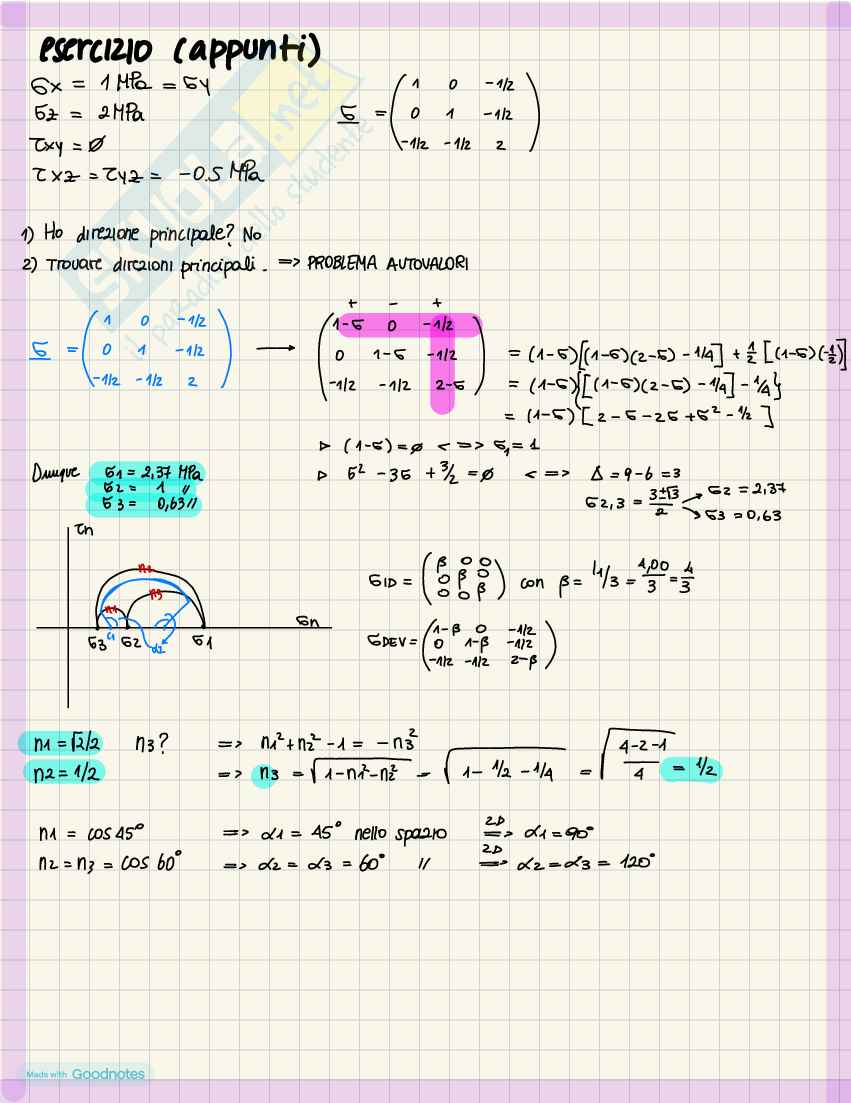 esercizio (appunti)
σx = 1 MPa = σy
σz = 2 MPa
τxy = ∅
τxz = τyz = -0.5 MPa
σ = (1 0 -1/2
0 1 -1/2
-1/2 -1/2 2)
1) Ho direzione principale? No
2) Trovare direzioni principali. => PROBLEMA AUTOVALORI
σ = (1 0 -1/2
0 1 -1/2
-1/2 -1/2 2)
→
+ - +
(1-σ 0 -1/2
0 1-σ -1/2
-1/2 -1/2 2-σ)
= (1-σ)[(1-σ)(2-σ) - 1/4] + 1/2 [(1-σ)(-1/2)]
= (1-σ){[(1-σ)(2-σ) - 1/4] - 1/4}
= (1-σ)[2 - σ - 2σ + σ² - 1/2]
▷ (1-σ) = ∅ <=> σ1 = 1
▷ σ² - 3σ + 3/2 = ∅ <=> Δ = 9 - 6 = 3
σ2,3 = (3±√3)/2
σ2 = 2,37
σ3 = 0,63
Dunque σ1 = 2,37 MPa
σ2 = 1 //
σ3 = 0,63 //
τn
n2
n3
n1
σn
σ3 σ2 σ1
α1 α2
σID = (β 0 0
0 β 0
0 0 β) con β = I1/3 = 4,00/3 = 4/3
σDEV = (1-β 0 -1/2
0 1-β -1/2
-1/2 -1/2 2-β)
n1 = √2/2 n3? => n1² + n2² - 1 = -n3²
n2 = 1/2 => n3 = √(1-n1²-n2²) = √(1 - 1/2 - 1/4) = √((4-2-1)/4) = 1/2
n1 = cos 45° => α1 = 45° nello spazio =2D=> α1 = 90°
n2 = n3 = cos 60° => α2 = α3 = 60° // =2D=> α2 = α3 = 120°
SKUOLA.net
il paradiso dello studente
Made with Goodnotes